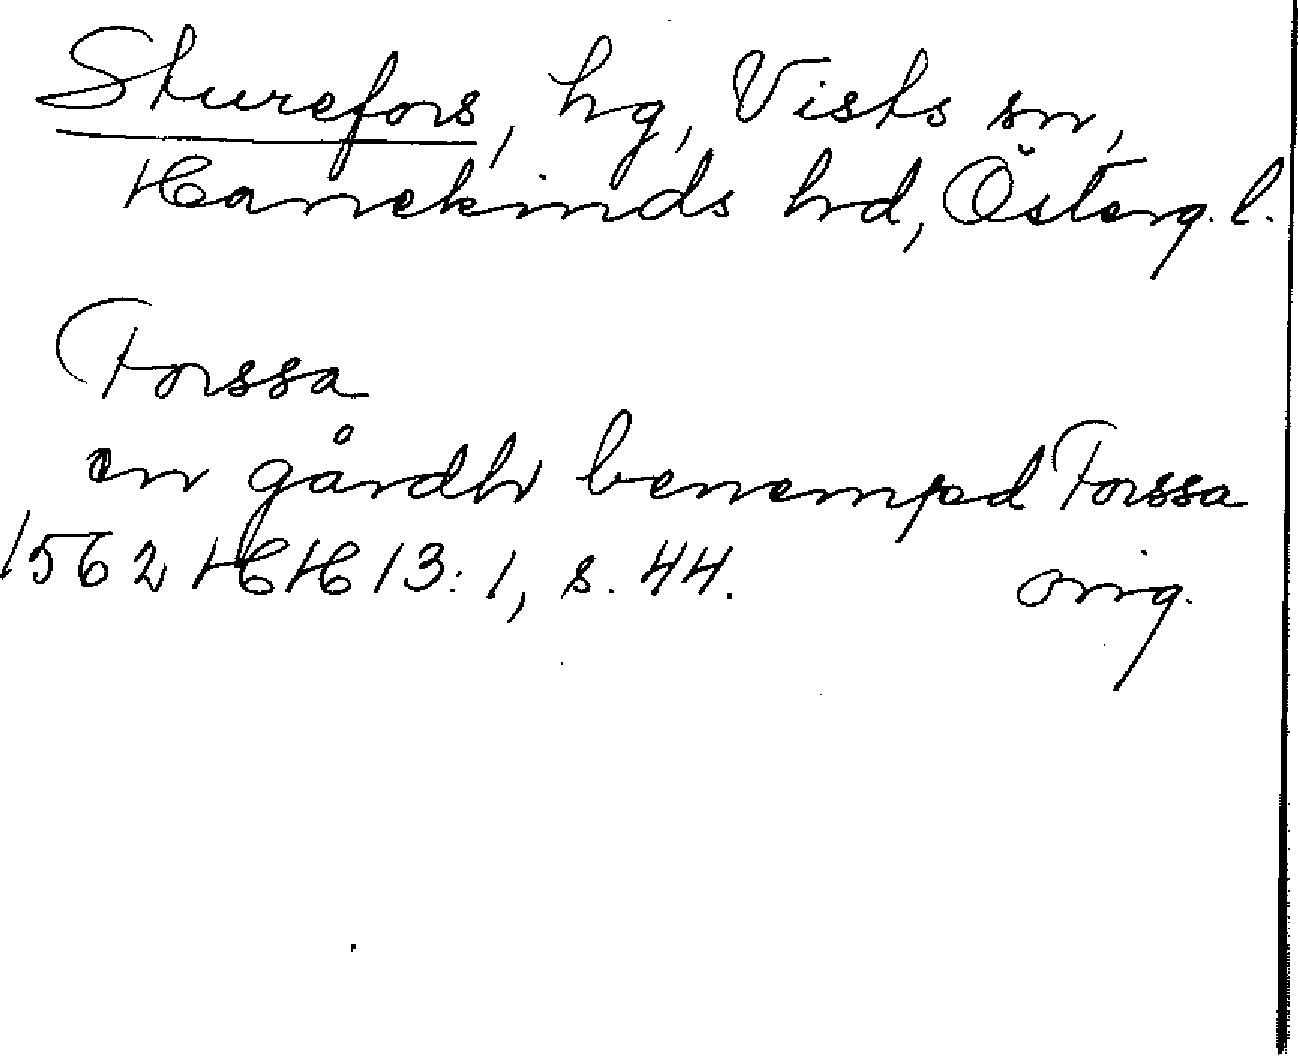 Sturefors, hg, Vists sn,
Hanekinds hd, Österg. l.
Forssa
en gårdh benempd Forssa
1562 HH 13: 1, s. 44. orig.